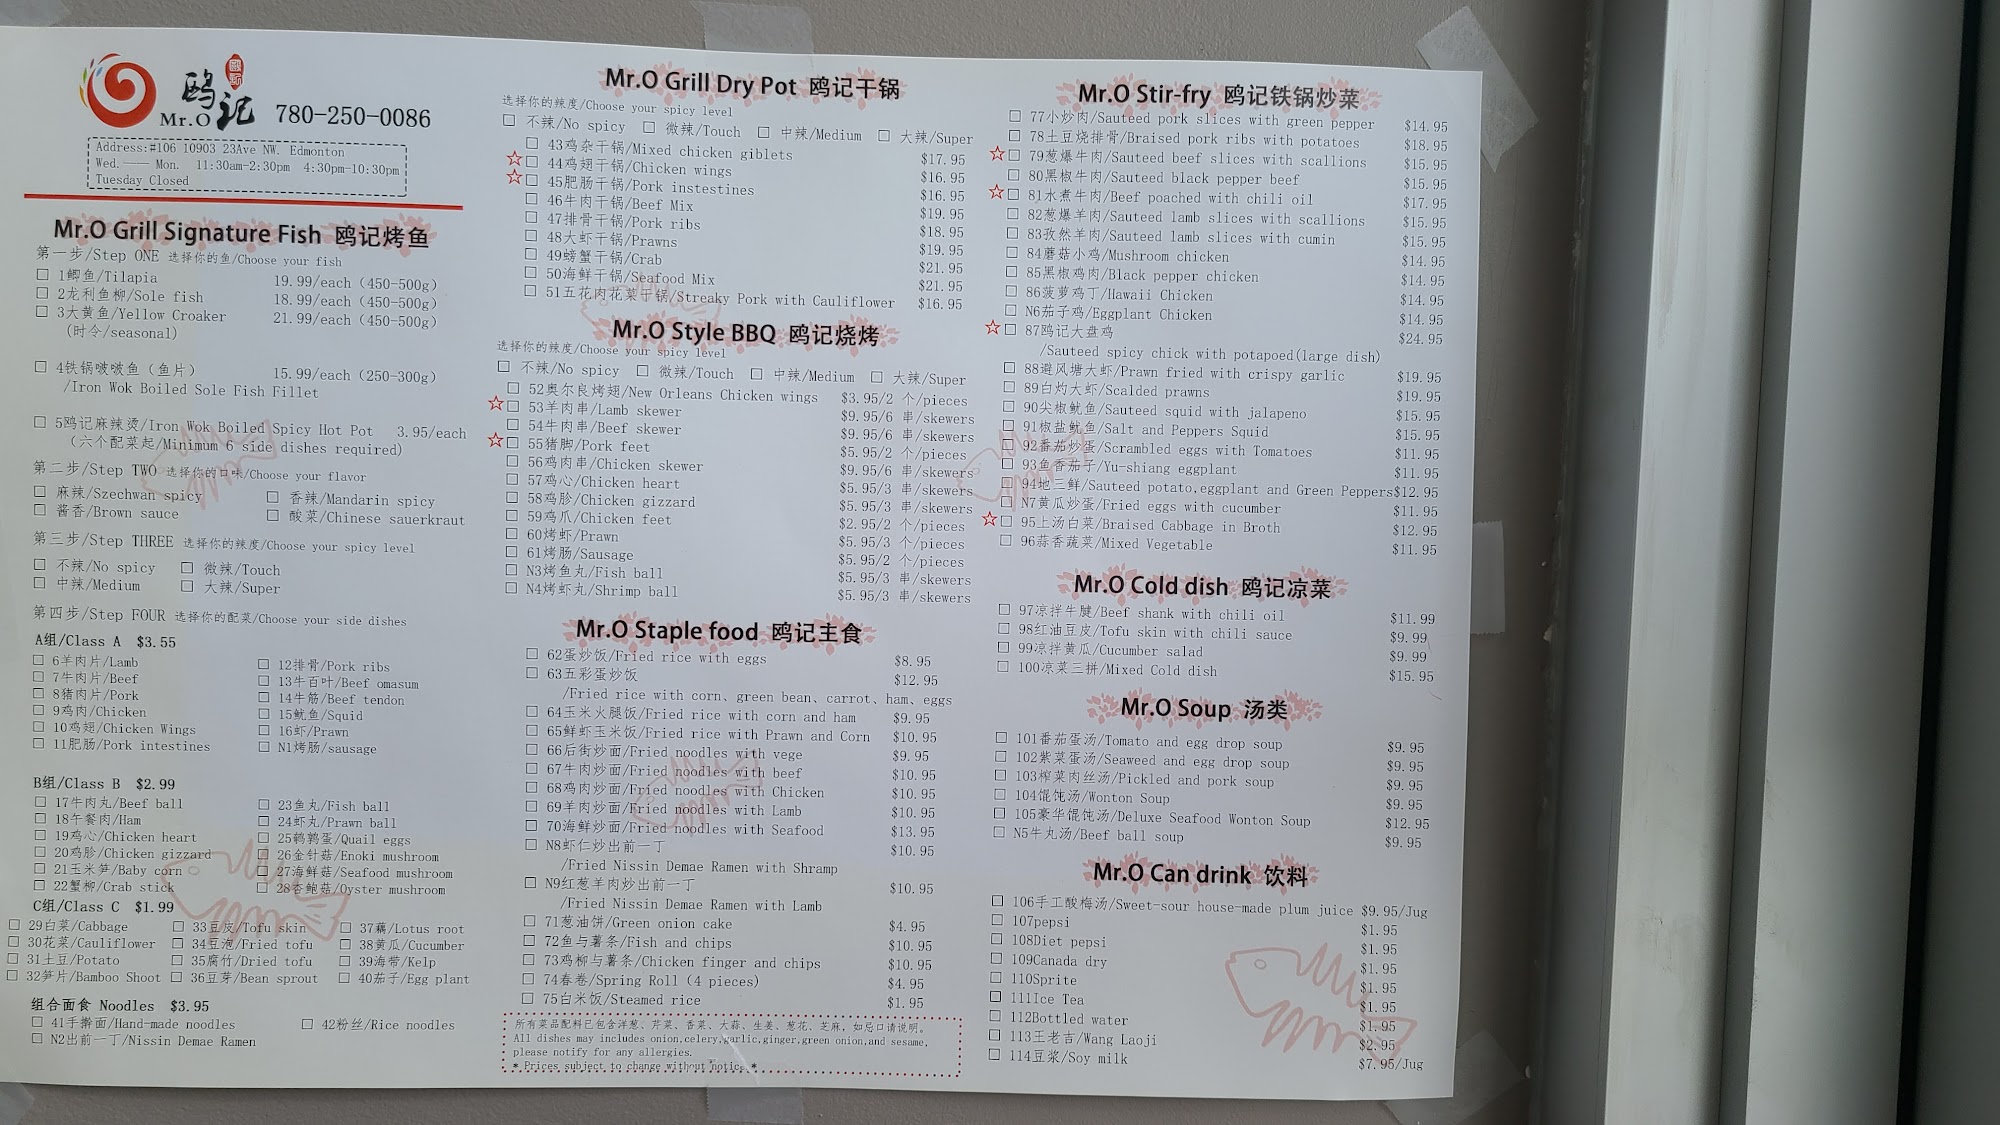 鸥记
Mr.O
780-250-0086
Address:#106 10903 23Ave NW. Edmonton
Wed.—— Mon. 11:30am-2:30pm 4:30pm-10:30pm
Tuesday Closed
Mr.O Grill Signature Fish 鸥记烤鱼
第一步/Step ONE 选择你的鱼/Choose your fish
□ 1鲫鱼/Tilapia 19.99/each (450-500g)
□ 2龙利鱼柳/Sole fish 18.99/each (450-500g)
□ 3大黄鱼/Yellow Croaker 21.99/each (450-500g)
(时令/seasonal)
□ 4铁锅啵啵鱼 (鱼片) 15.99/each (250-300g)
/Iron Wok Boiled Sole Fish Fillet
□ 5鸥记麻辣烫/Iron Wok Boiled Spicy Hot Pot 3.95/each
(六个配菜起/Minimum 6 side dishes required)
第二步/Step TWO 选择你的口味/Choose your flavor
□ 麻辣/Szechwan spicy □ 香辣/Mandarin spicy
□ 酱香/Brown sauce □ 酸菜/Chinese sauerkraut
第三步/Step THREE 选择你的辣度/Choose your spicy level
□ 不辣/No spicy □ 微辣/Touch
□ 中辣/Medium □ 大辣/Super
第四步/Step FOUR 选择你的配菜/Choose your side dishes
A组/Class A $3.55
□ 6羊肉片/Lamb □ 12排骨/Pork ribs
□ 7牛肉片/Beef □ 13牛百叶/Beef omasum
□ 8猪肉片/Pork □ 14牛筋/Beef tendon
□ 9鸡肉/Chicken □ 15鱿鱼/Squid
□ 10鸡翅/Chicken Wings □ 16虾/Prawn
□ 11肥肠/Pork intestines □ N1烤肠/sausage
B组/Class B $2.99
□ 17牛肉丸/Beef ball □ 23鱼丸/Fish ball
□ 18午餐肉/Ham □ 24虾丸/Prawn ball
□ 19鸡心/Chicken heart □ 25鹌鹑蛋/Quail eggs
□ 20鸡胗/Chicken gizzard □ 26金针菇/Enoki mushroom
□ 21玉米笋/Baby corn □ 27海鲜菇/Seafood mushroom
□ 22蟹柳/Crab stick □ 28杏鲍菇/Oyster mushroom
C组/Class C $1.99
□ 29白菜/Cabbage □ 33豆皮/Tofu skin □ 37藕/Lotus root
□ 30花菜/Cauliflower □ 34豆泡/Fried tofu □ 38黄瓜/Cucumber
□ 31土豆/Potato □ 35腐竹/Dried tofu □ 39海带/Kelp
□ 32笋片/Bamboo Shoot □ 36豆芽/Bean sprout □ 40茄子/Egg plant
组合面食 Noodles $3.95
□ 41手擀面/Hand-made noodles □ 42粉丝/Rice noodles
□ N2出前一丁/Nissin Demae Ramen
Mr.O Grill Dry Pot 鸥记干锅
选择你的辣度/Choose your spicy level
□ 不辣/No spicy □ 微辣/Touch □ 中辣/Medium □ 大辣/Super
□ 43鸡杂干锅/Mixed chicken giblets $17.95
☆□ 44鸡翅干锅/Chicken wings $16.95
☆□ 45肥肠干锅/Pork instestines $16.95
□ 46牛肉干锅/Beef Mix $19.95
□ 47排骨干锅/Pork ribs $18.95
□ 48大虾干锅/Prawns $19.95
□ 49螃蟹干锅/Crab $21.95
□ 50海鲜干锅/Seafood Mix $21.95
□ 51五花肉花菜干锅/Streaky Pork with Cauliflower $16.95
Mr.O Style BBQ 鸥记烧烤
选择你的辣度/Choose your spicy level
□ 不辣/No spicy □ 微辣/Touch □ 中辣/Medium □ 大辣/Super
□ 52奥尔良烤翅/New Orleans Chicken wings $3.95/2 个/pieces
☆□ 53羊肉串/Lamb skewer $9.95/6 串/skewers
□ 54牛肉串/Beef skewer $9.95/6 串/skewers
☆□ 55猪脚/Pork feet $5.95/2 个/pieces
□ 56鸡肉串/Chicken skewer $9.95/6 串/skewers
□ 57鸡心/Chicken heart $5.95/3 串/skewers
□ 58鸡胗/Chicken gizzard $5.95/3 串/skewers
□ 59鸡爪/Chicken feet $2.95/2 个/pieces
□ 60烤虾/Prawn $5.95/3 个/pieces
□ 61烤肠/Sausage $5.95/2 个/pieces
□ N3烤鱼丸/Fish ball $5.95/3 串/skewers
□ N4烤虾丸/Shrimp ball $5.95/3 串/skewers
Mr.O Staple food 鸥记主食
□ 62蛋炒饭/Fried rice with eggs $8.95
□ 63五彩蛋炒饭 $12.95
/Fried rice with corn、green bean、carrot、ham、eggs
□ 64玉米火腿饭/Fried rice with corn and ham $9.95
□ 65鲜虾玉米饭/Fried rice with Prawn and Corn $10.95
□ 66后街炒面/Fried noodles with vege $9.95
□ 67牛肉炒面/Fried noodles with beef $10.95
□ 68鸡肉炒面/Fried noodles with Chicken $10.95
□ 69羊肉炒面/Fried noodles with Lamb $10.95
□ 70海鲜炒面/Fried noodles with Seafood $13.95
□ N8虾仁炒出前一丁 $10.95
/Fried Nissin Demae Ramen with Shramp
□ N9红葱羊肉炒出前一丁 $10.95
/Fried Nissin Demae Ramen with Lamb
□ 71葱油饼/Green onion cake $4.95
□ 72鱼与薯条/Fish and chips $10.95
□ 73鸡柳与薯条/Chicken finger and chips $10.95
□ 74春卷/Spring Roll (4 pieces) $4.95
□ 75白米饭/Steamed rice $1.95
所有菜品配料已包含洋葱、芹菜、香菜、大蒜、生姜、葱花、芝麻，如忌口请说明。
All dishes may includes onion,celery,garlic,ginger,green onion,and sesame,
please notify for any allergies.
* Prices subject to change without notice *
Mr.O Stir-fry 鸥记铁锅炒菜
□ 77小炒肉/Sauteed pork slices with green pepper $14.95
□ 78土豆烧排骨/Braised pork ribs with potatoes $18.95
☆□ 79葱爆牛肉/Sauteed beef slices with scallions $15.95
□ 80黑椒牛肉/Sauteed black pepper beef $15.95
☆□ 81水煮牛肉/Beef poached with chili oil $17.95
□ 82葱爆羊肉/Sauteed lamb slices with scallions $15.95
□ 83孜然羊肉/Sauteed lamb slices with cumin $15.95
□ 84蘑菇小鸡/Mushroom chicken $14.95
□ 85黑椒鸡肉/Black pepper chicken $14.95
□ 86菠萝鸡丁/Hawaii Chicken $14.95
□ N6茄子鸡/Eggplant Chicken $14.95
☆□ 87鸥记大盘鸡 $24.95
/Sauteed spicy chick with potapoed(large dish)
□ 88避风塘大虾/Prawn fried with crispy garlic $19.95
□ 89白灼大虾/Scalded prawns $19.95
□ 90尖椒鱿鱼/Sauteed squid with jalapeno $15.95
□ 91椒盐鱿鱼/Salt and Peppers Squid $15.95
□ 92番茄炒蛋/Scrambled eggs with Tomatoes $11.95
□ 93鱼香茄子/Yu-shiang eggplant $11.95
□ 94地三鲜/Sauteed potato,eggplant and Green Peppers $12.95
□ N7黄瓜炒蛋/Fried eggs with cucumber $11.95
☆□ 95上汤白菜/Braised Cabbage in Broth $12.95
□ 96蒜香蔬菜/Mixed Vegetable $11.95
Mr.O Cold dish 鸥记凉菜
□ 97凉拌牛腱/Beef shank with chili oil $11.99
□ 98红油豆皮/Tofu skin with chili sauce $9.99
□ 99凉拌黄瓜/Cucumber salad $9.99
□ 100凉菜三拼/Mixed Cold dish $15.95
Mr.O Soup 汤类
□ 101番茄蛋汤/Tomato and egg drop soup $9.95
□ 102紫菜蛋汤/Seaweed and egg drop soup $9.95
□ 103榨菜肉丝汤/Pickled and pork soup $9.95
□ 104馄饨汤/Wonton Soup $9.95
□ 105豪华馄饨汤/Deluxe Seafood Wonton Soup $12.95
□ N5牛丸汤/Beef ball soup $9.95
Mr.O Can drink 饮料
□ 106手工酸梅汤/Sweet-sour house-made plum juice $9.95/Jug
□ 107pepsi $1.95
□ 108Diet pepsi $1.95
□ 109Canada dry $1.95
□ 110Sprite $1.95
□ 111Ice Tea $1.95
□ 112Bottled water $1.95
□ 113王老吉/Wang Laoji $2.95
□ 114豆浆/Soy milk $7.95/Jug